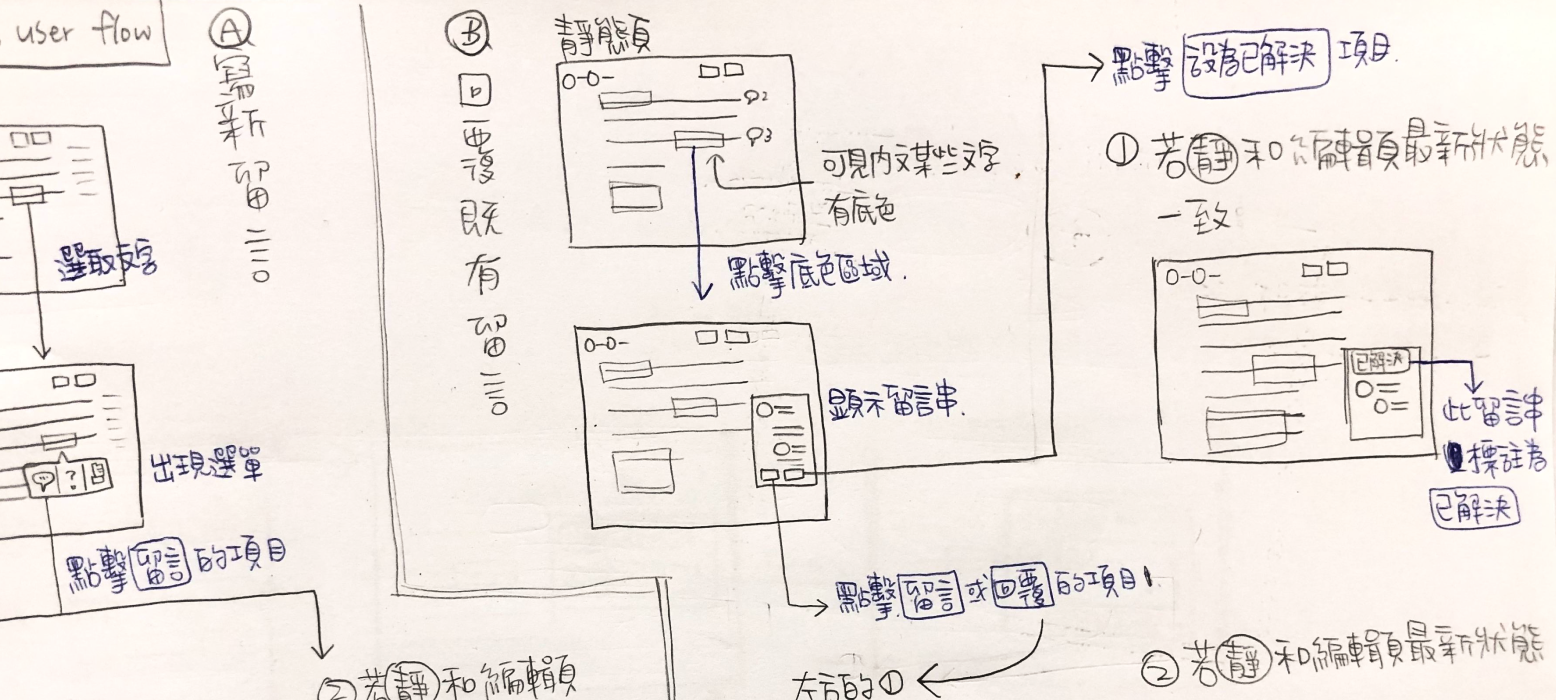 user flow
Ⓐ
寫新留言
選取文字
出現選單
?
點擊 留言 的項目
② 若靜和編輯頁
Ⓑ
回覆既有留言
靜態頁
2
3
可見內文某些文字,
有底色
點擊底色區域.
顯示留言串.
點擊 留言 或 回覆 的項目
左方的①
點擊 設為已解決 項目.
① 若靜和編輯頁最新狀態
一致
已解決
此留言串
標註為
已解決
② 若靜和編輯頁最新狀態